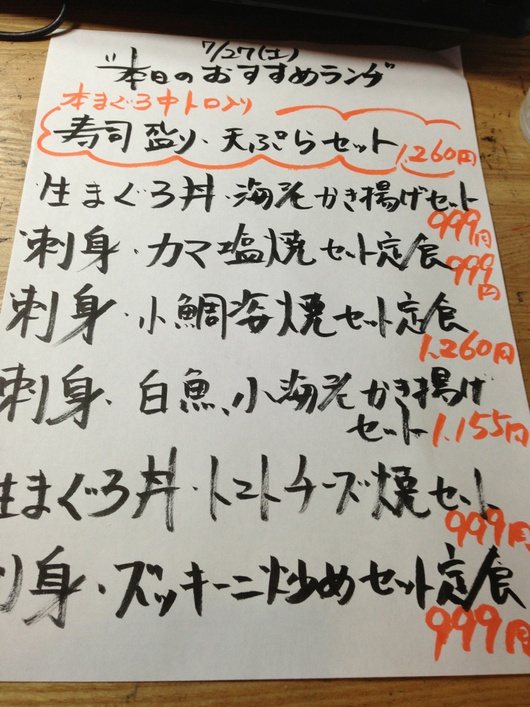 7/27(土)
"本日のおすすめランチ"
本まぐろ中トロ入り
寿司盛り・天ぷらセット 1,260円
生まぐろ丼・海老かき揚げセット
999円
刺身・カマ塩焼セット定食 999円
刺身・小鯛姿焼セット定食
1,260円
刺身・白魚、小海老かき揚げ
セット 1,155円
生まぐろ丼・トマトチーズ焼セット
999円
刺身・ズッキーニ炒めセット定食
999円